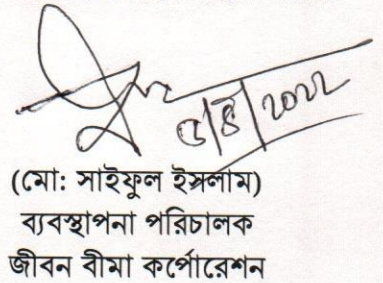 (মো: সাইফুল ইসলাম)
ব্যবস্থাপনা পরিচালক
জীবন বীমা কর্পোরেশন